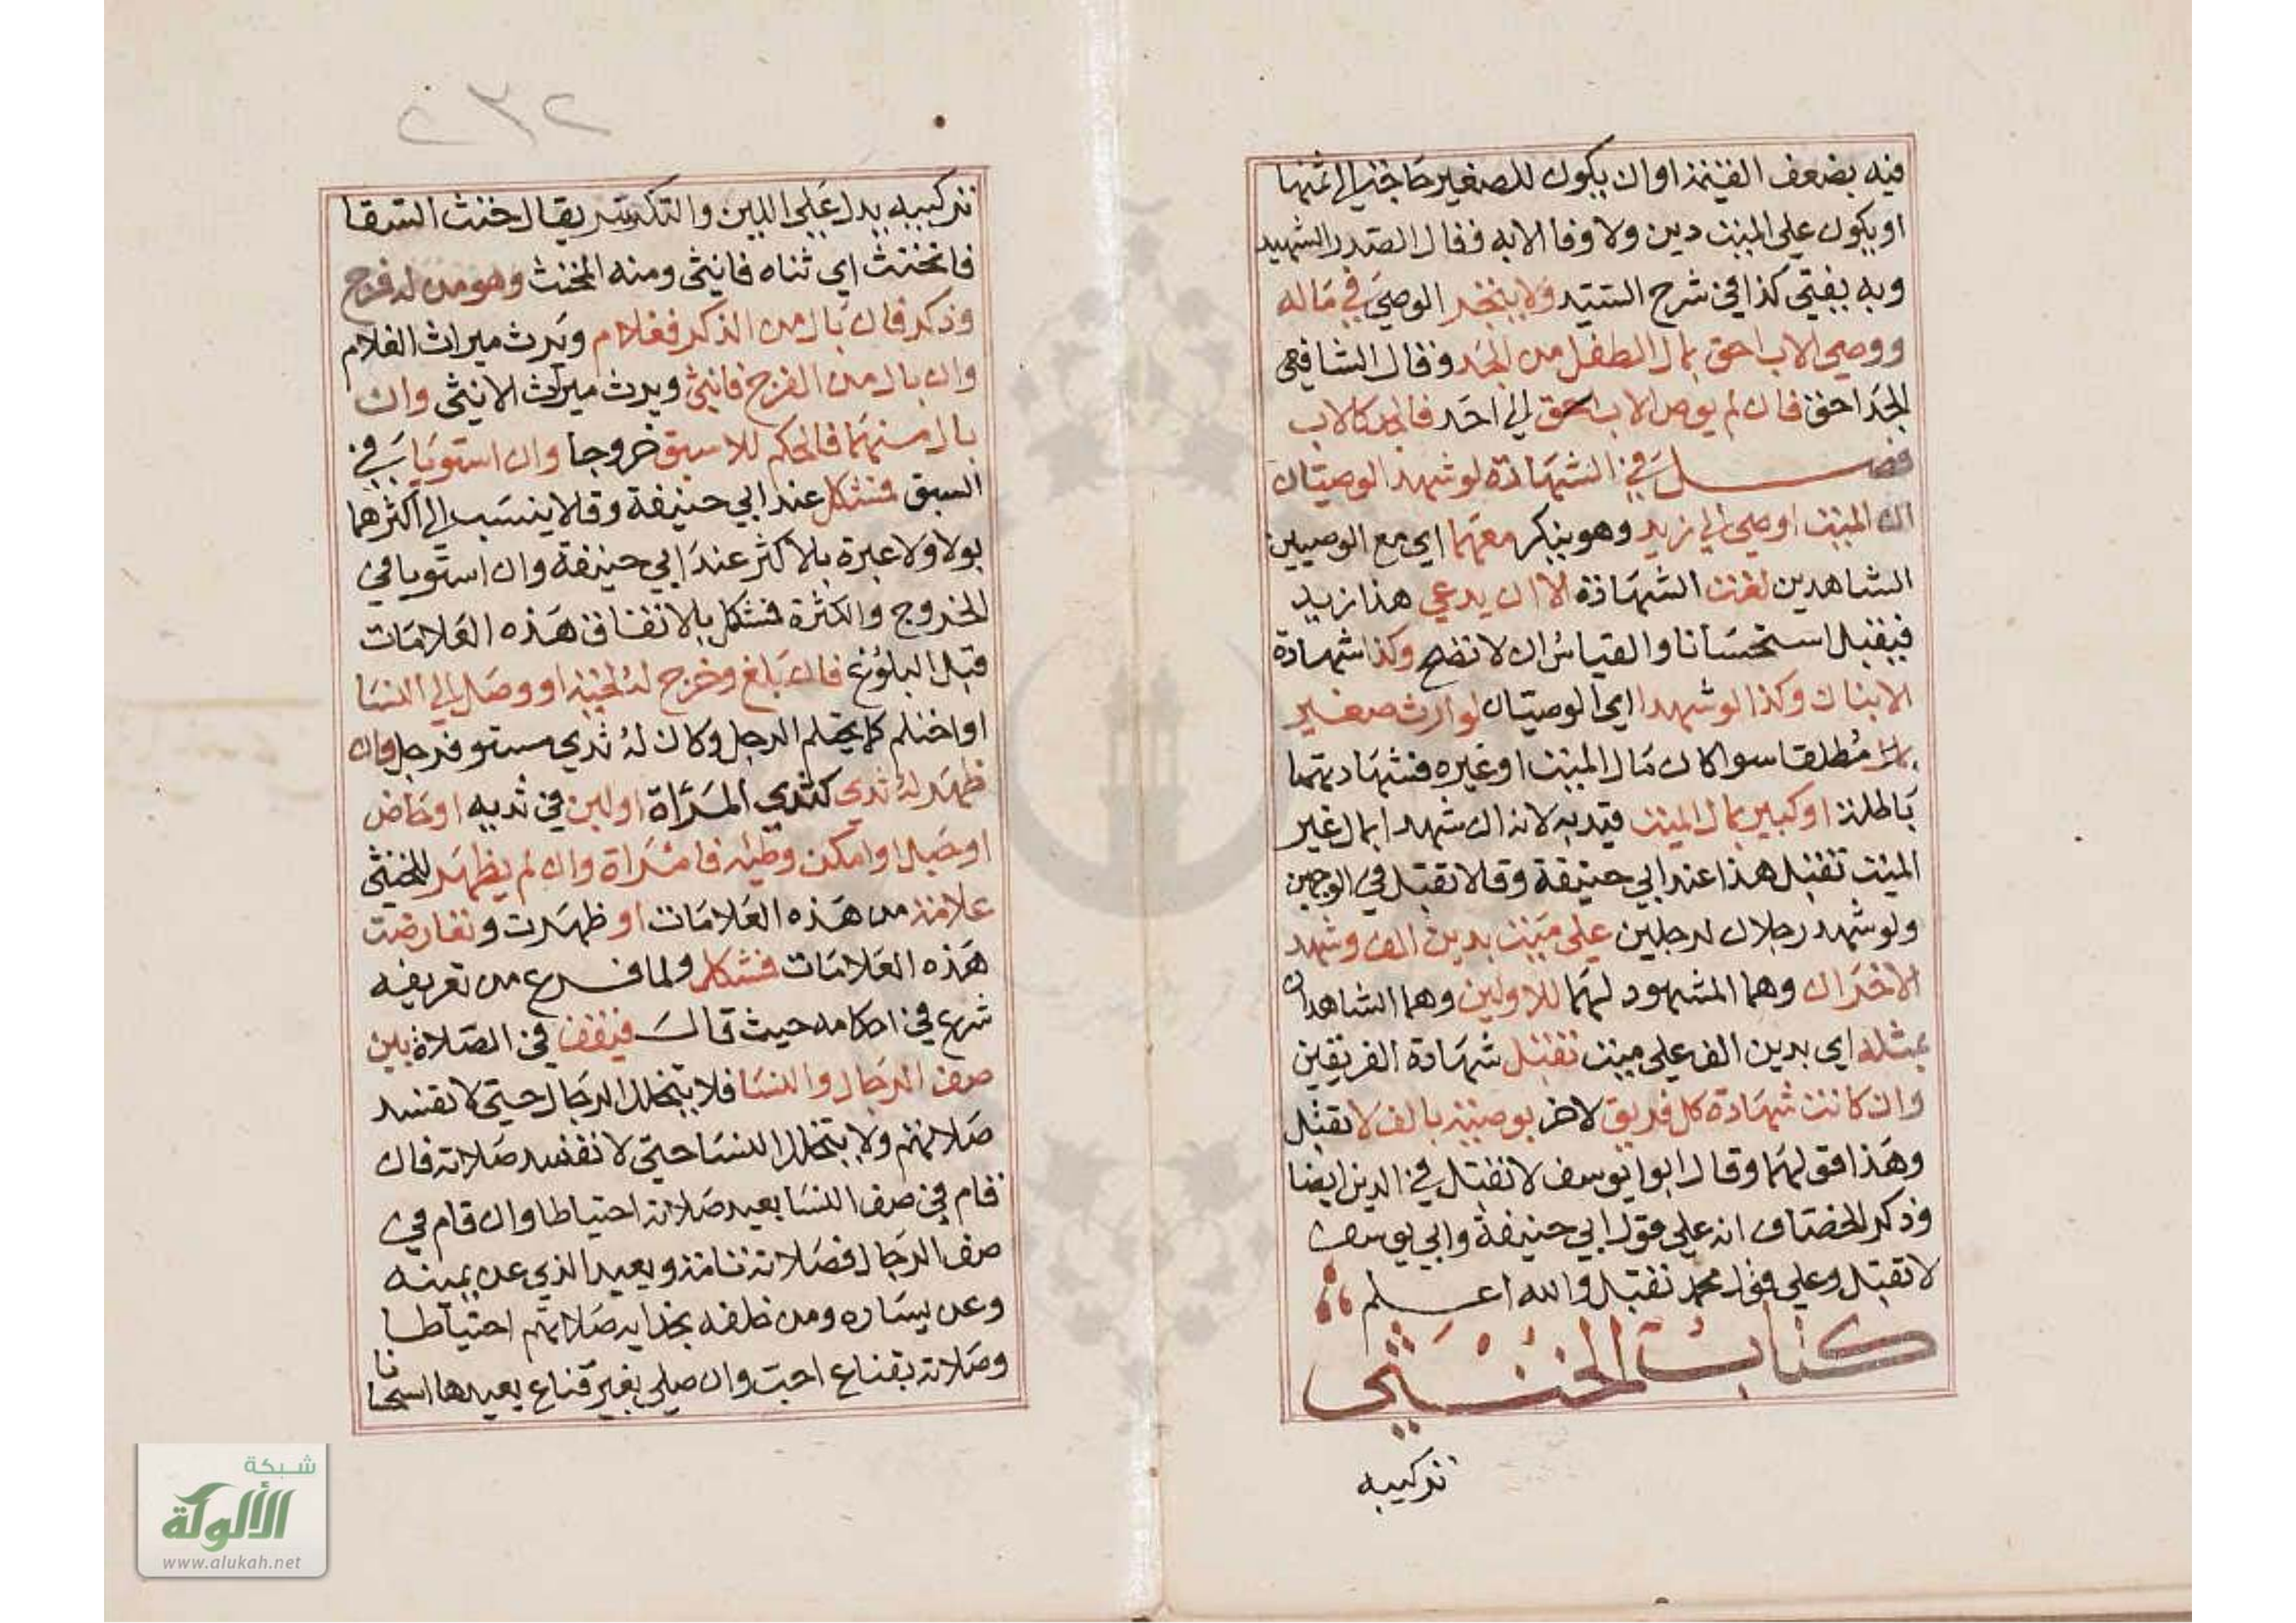 فيه بضعف القيمة او ان يكون للصغير حاجة الى ثمنها
او يكون على الميت دين ولا وفا الا به فقال الصدر الشهيد
وبه يفتى كذا في شرح السيد ولا يتجر الوصي في ماله
ووصي الاب احق بمال الطفل من الجد وقال الشافعي
الجد احق فان لم يوص الاب الى احد فالجد كالاب
فصل في الشهادة لو شهد الوصيان
ان الميت اوصى الى زيد وهو ينكر معهما اي مع الوصيين
الشاهدين لغت الشهادة الا ان يدعي هذا زيد
فيقبل استحسانا والقياس ان لا تصح وكذا شهادة
الابنان وكذا لو شهدا اي الوصيان لوارث صغير
بمال مطلقا سوا كان مال الميت او غيره فشهادتهما
باطلة او كبير بمال الميت قيد به لانه ان شهدا بمال غير
الميت تقبل هذا عند ابي حنيفة وقالا تقبل في الوجهين
ولو شهد رجلان لرجلين على ميت بدين الف وشهد
الاخران وهما المشهود لهما للاولين وهما الشاهدان
بمثله اي بدين الف على ميت تقبل شهادة الفريقين
وان كانت شهادة كل فريق لاخر بوصية بالف لا تقبل
وهذا قولهما وقال ابوا يوسف لا تقبل في الدين ايضا
وذكر الخصاف انه على قول ابي حنيفة وابي يوسف
لا تقبل وعلى قول محمد تقبل والله اعلم
كتاب الخنثى
تركيبه
٢٣٢
تركيبه يدل على اللين والتكسر يقال خنث السقا
فانخنث اي ثناه فانثنى ومنه المخنث وهو من له فرج
وذكر فان بال من الذكر فغلام ويرث ميراث الغلام
وان بال من الفرج فانثى ويرث ميراث الانثى وان
بال منهما فالحكم للاسبق خروجا وان استويا في
السبق فمشكل عند ابي حنيفة وقالا ينسب الى اكثرهما
بولا ولا عبرة بالاكثر عند ابي حنيفة وان استويا في
الخروج والكثرة فمشكل بالاتفاق هذه العلامات
قبل البلوغ فان بلغ وخرج له لحية او وصل الى النسا
او احتلم كما يحتلم الرجل وكان له ثدي مستو فرجل وان
ظهر له ثدي كثدي المراة او لبن في ثديه او حاض
او حبل او امكن وطئه فامراة وان لم يظهر للخنثى
علامة من هذه العلامات او ظهرت وتعارضت
هذه العلامات فمشكل ولما فرغ من تعريفه
شرع في احكامه حيث قال فيقف في الصلاة بين
صف الرجال والنسا فلا يتخلل الرجال حتى لا تفسد
صلاتهم ولا يتخلل النسا حتى لا تفسد صلاته فان
قام في صف النسا يعيد صلاته احتياطا وان قام في
صف الرجال فصلاته تامة ويعيد الذي عن يمينه
وعن يساره ومن خلفه بحذايه صلاتهم احتياطا
وصلاته بقناع احب وان صلى بغير قناع يعيدها استحبابا
شبكة
الألوكة
www.alukah.net